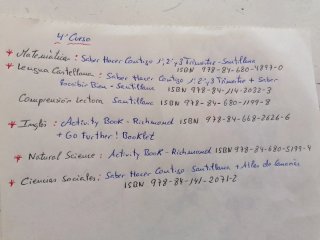 4º Curso
* Matemáticas: Saber Hacer Contigo 1º, 2º y 3º Trimestre - Santillana
ISBN 978-84-680-4897-0
* Lengua Castellana: Saber Hacer Contigo 1º, 2º y 3º Trimestre + Saber
Escribir Bien - Santillana ISBN 978-84-114-2032-3
Comprensión Lectora Santillana ISBN 978-84-680-1199-8
* Inglés: Activity Book - Richmond ISBN 978-84-668-2626-6
+ Go Further! Booklet
* Natural Science: Activity Book - Richmond ISBN 978-84-680-5199-4
* Ciencias Sociales: Saber Hacer Contigo Santillana + Atlas de Canarias
ISBN 978-84-141-2071-2